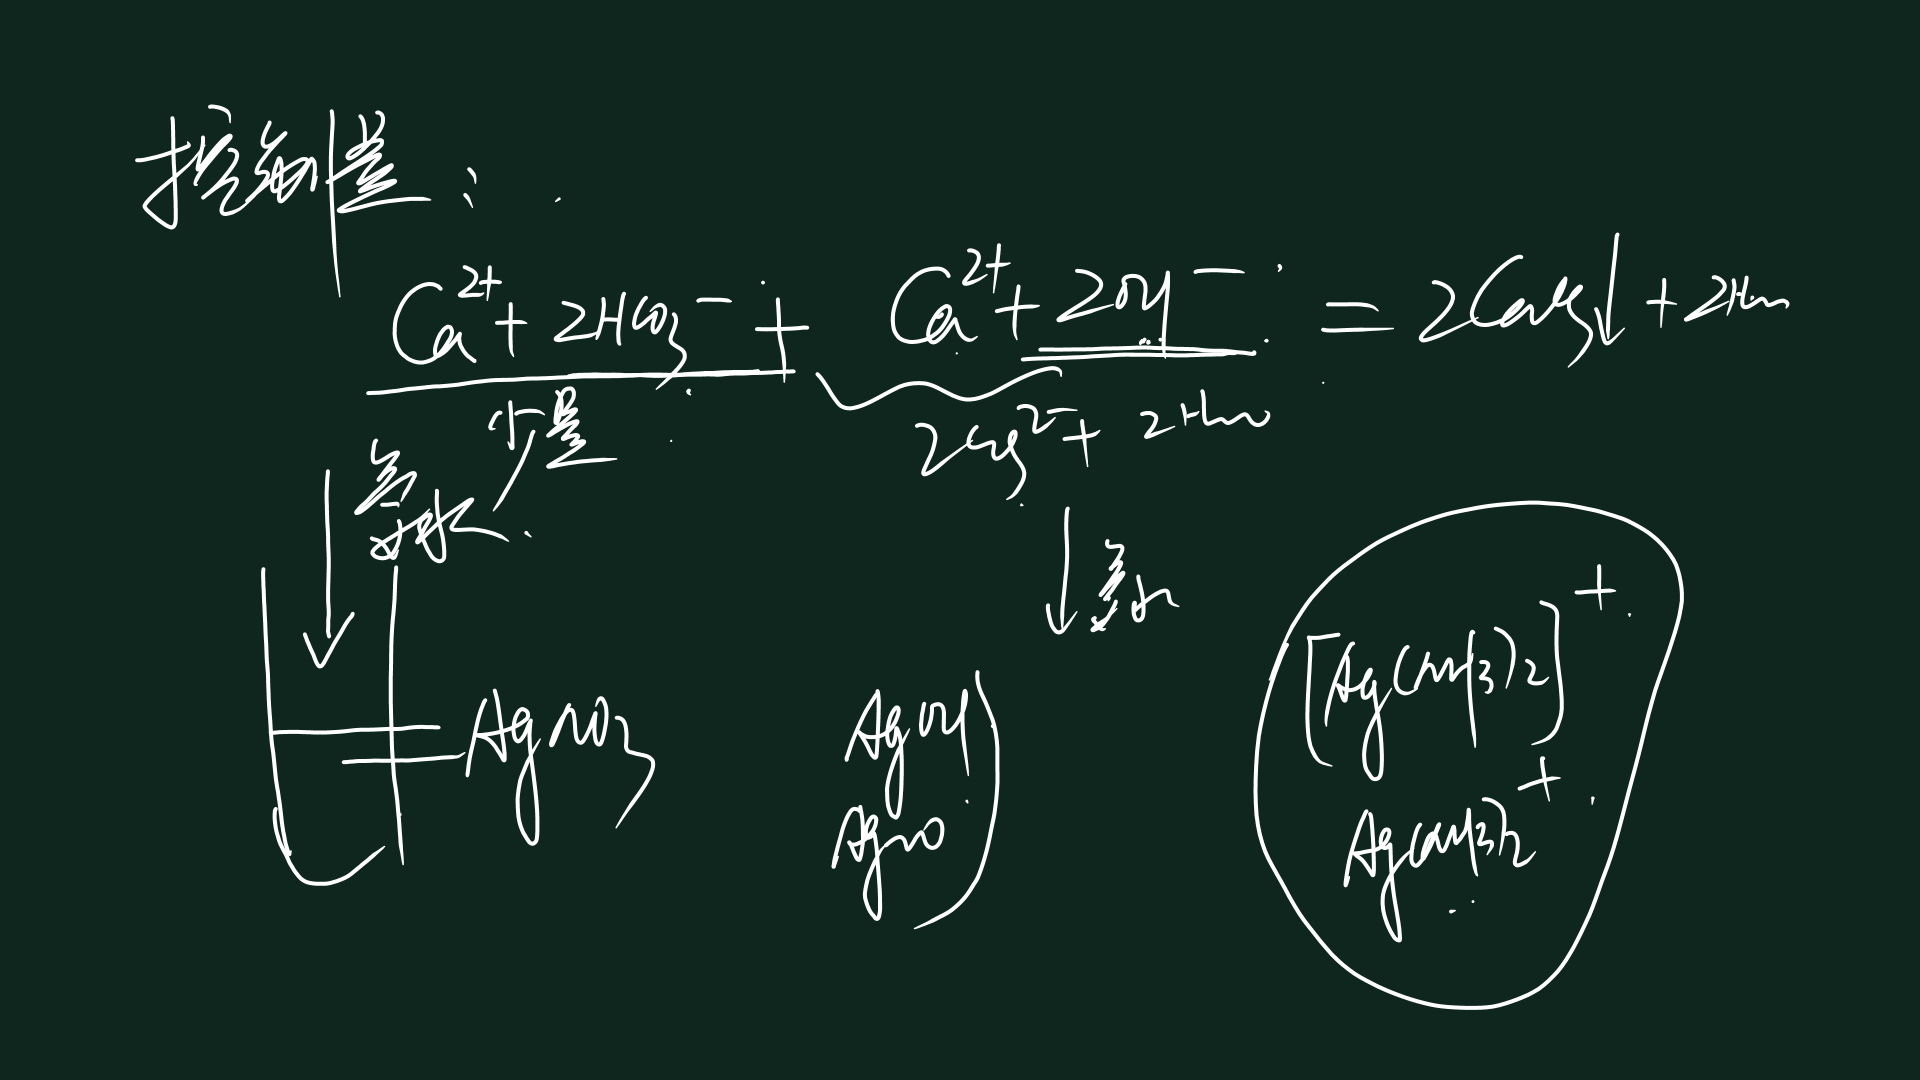 控制量：
Ca²⁺ + 2HCO₃⁻ + Ca²⁺ + 2OH⁻ = 2CaCO₃↓ + 2H₂O
少量
2CO₃²⁻ + 2H₂O
氨水
氨水
[Ag(NH₃)₂]⁺
AgNO₃
AgOH
Ag₂O
Ag(NH₃)₂⁺